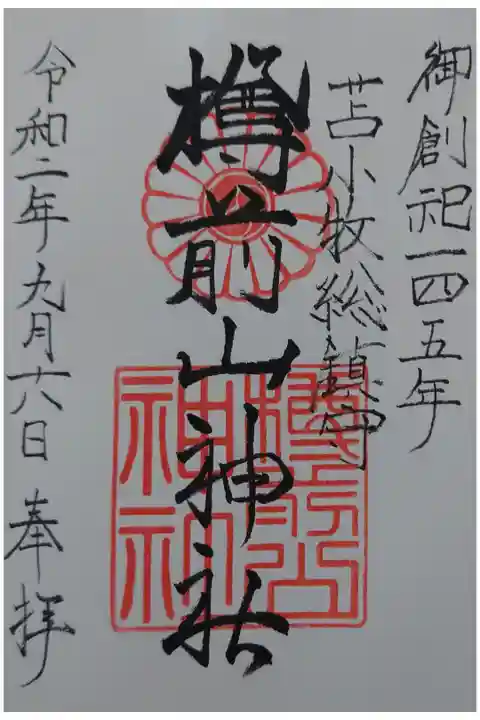 御創祀一四五年
苫小牧総鎮守
樽前山神社
樽前山
神社
令和二年九月六日 奉拝